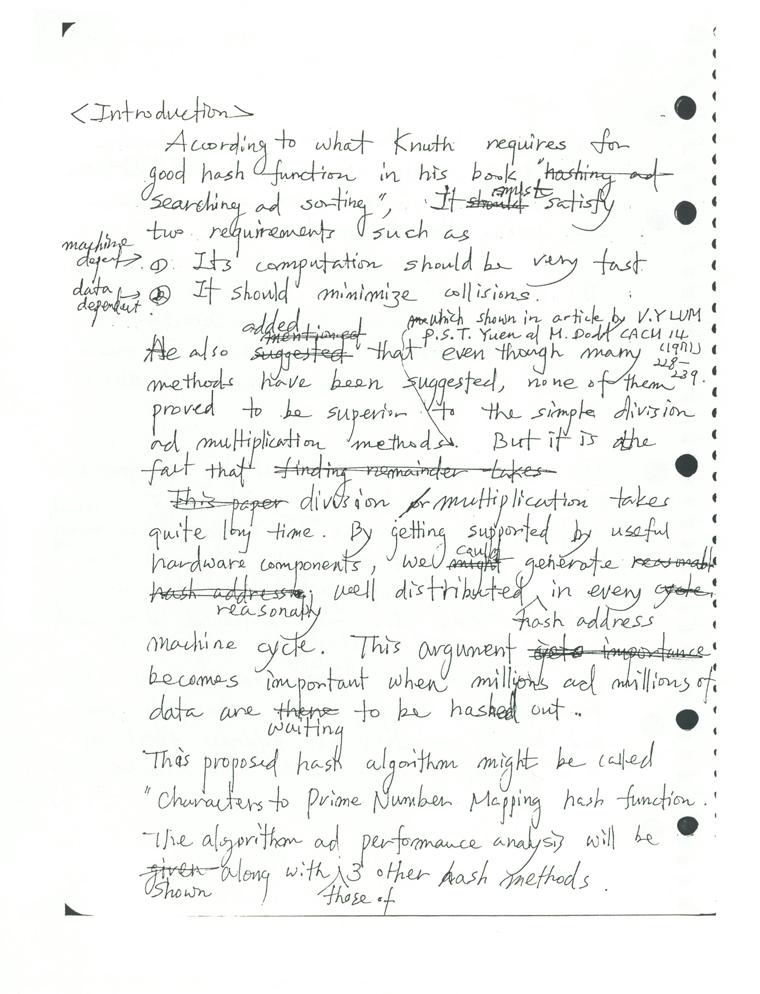 <Introduction>
According to what Knuth requires for
good hash function in his book "hashing ad
searching ad sorting", It should must satisfy
two requirements such as
machine depent → ① Its computation should be very fast
data dependent → ② It should minimize collisions.
added
mentioned
which shown in article by V.Y LUM
P.S.T. Yuen ad M. Dodd CACM 14
(1971)
228-
239.
He also suggested that even though many
methods have been suggested, none of them
proved to be superior to the simple division
ad multiplication methods. But it is the
fact that finding remainder takes
This paper division or multiplication takes
quite long time. By getting supported by useful
hardware components, we might could generate reasonabl
hash address well distributed in every cycle
reasonably
hash address
machine cycle. This argument importance
becomes important when millions ad millions of
data are there to be hashed out..
waiting
This proposed hash algorithm might be called
"Characters to Prime Number Mapping hash function.
The algorithm ad performance analysis will be
given along with 3 other hash methods.
shown
those of